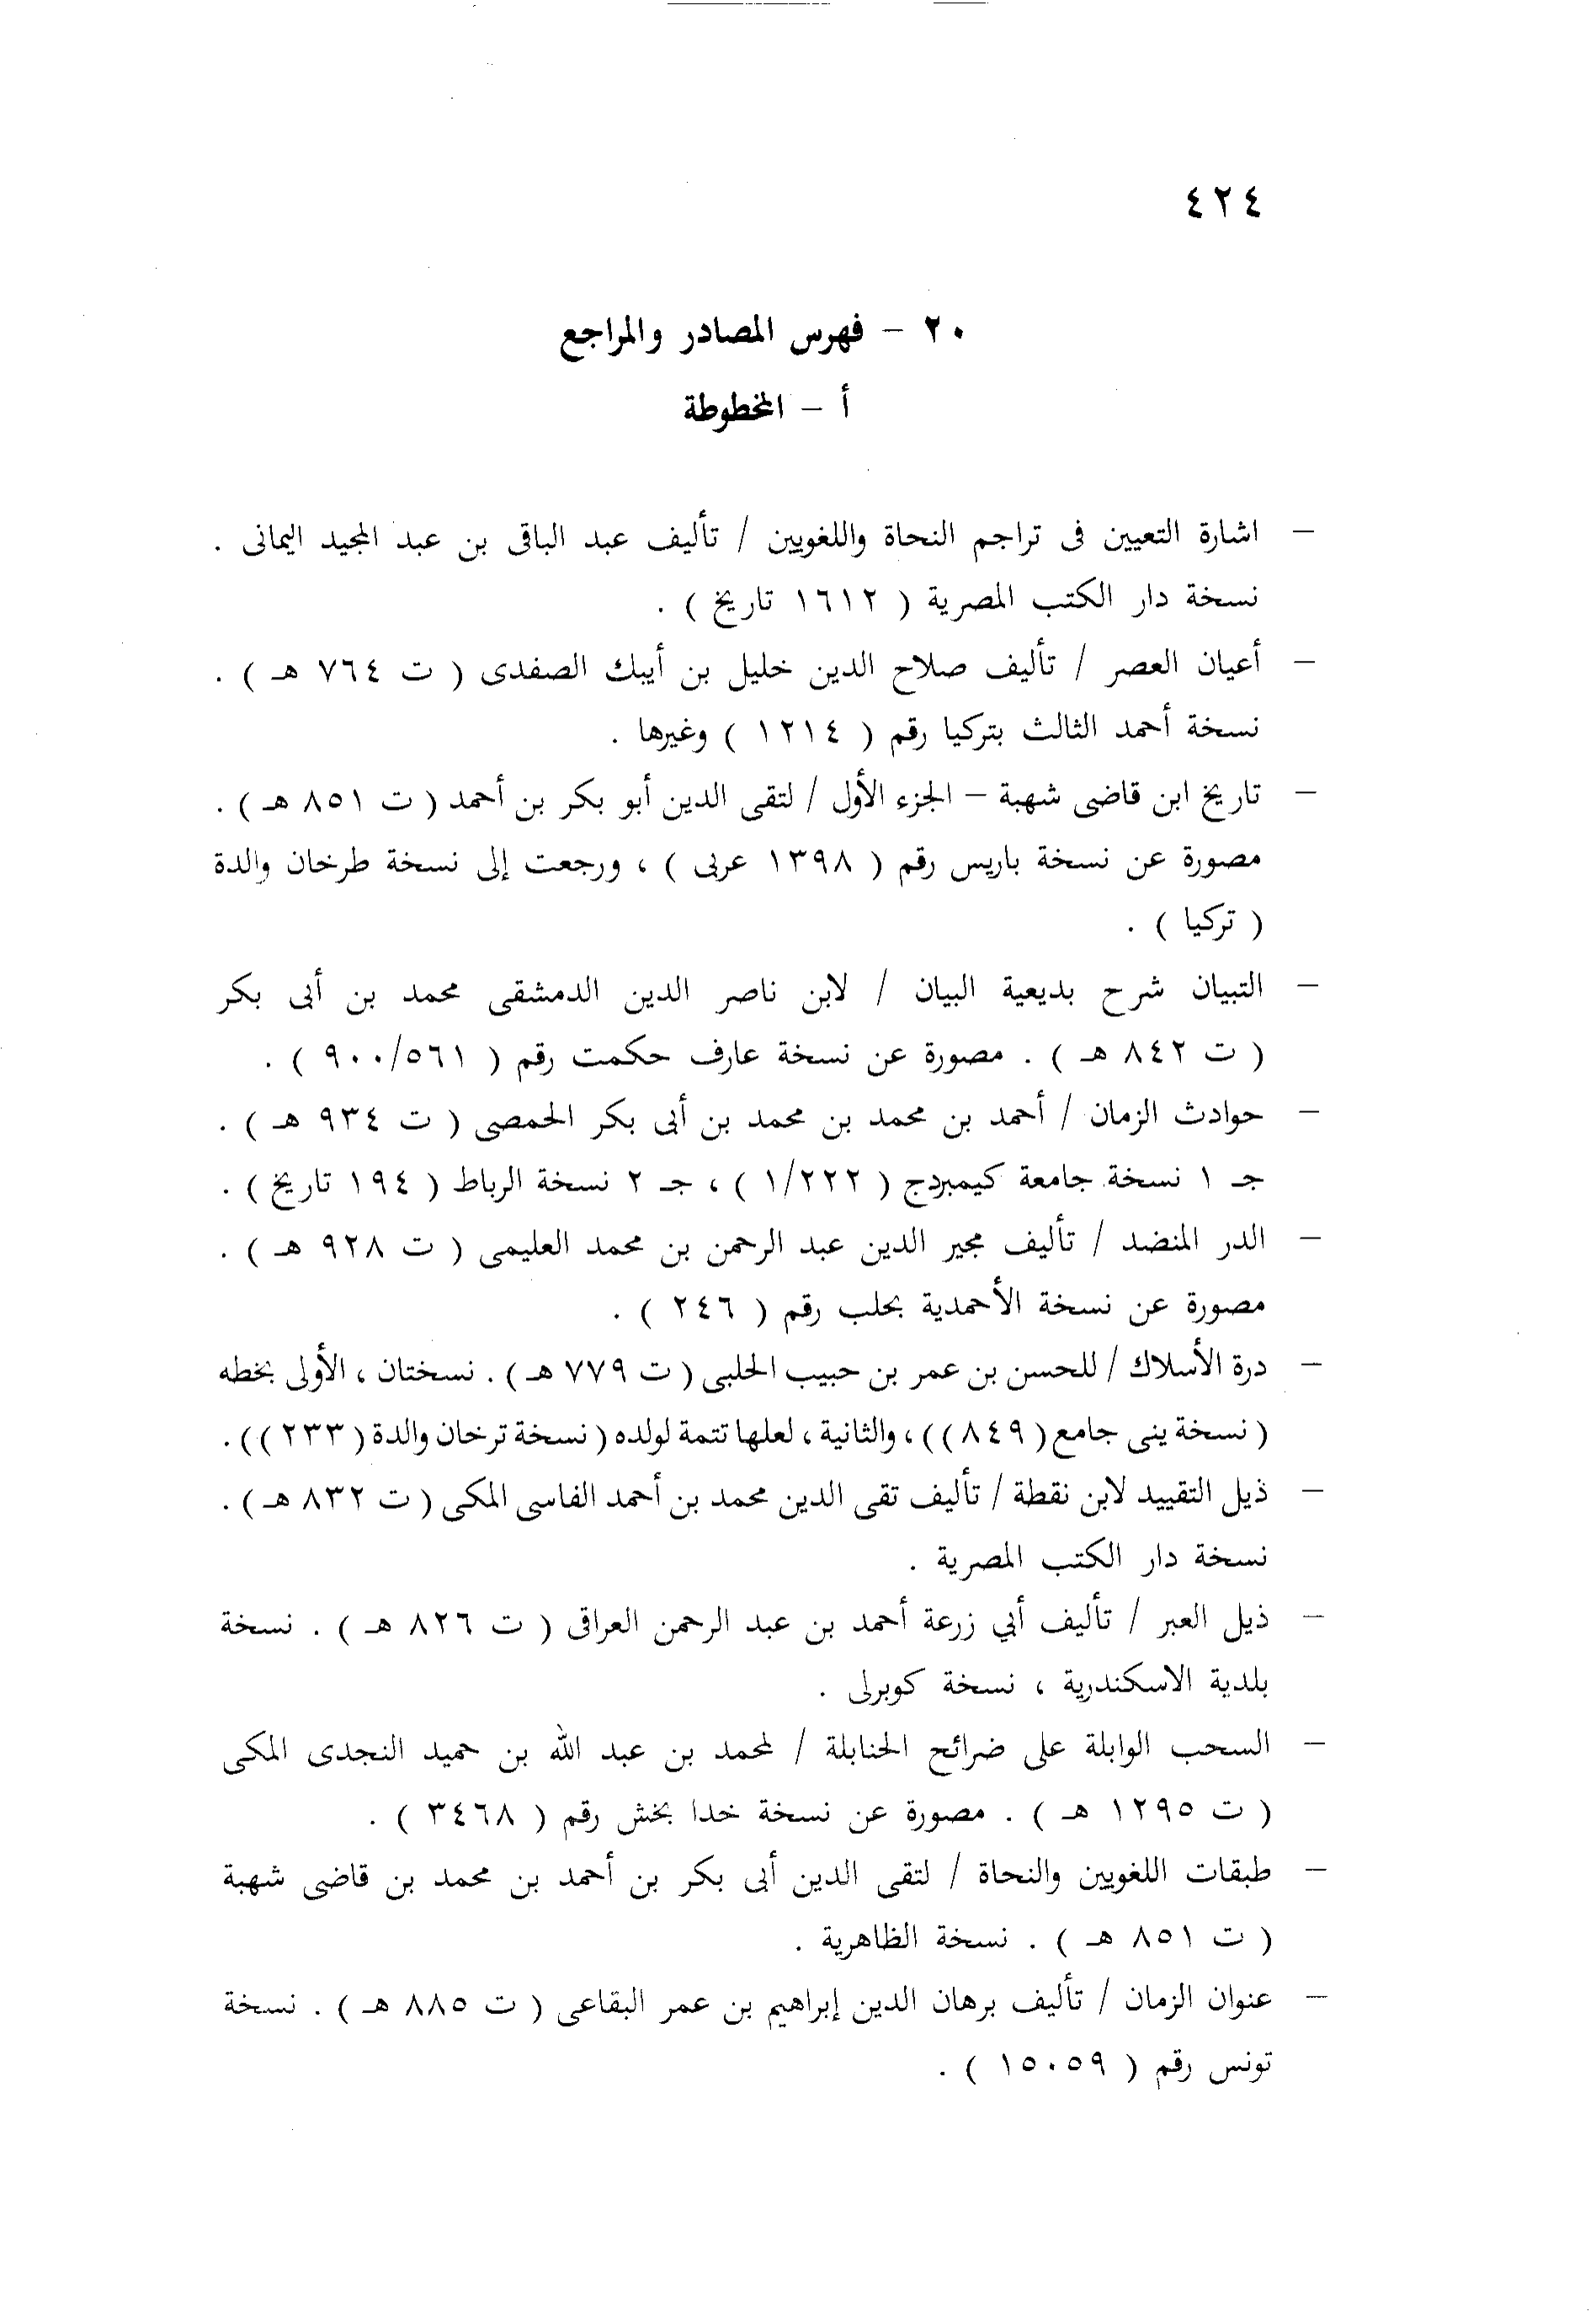 ٤٢٤
٢٠ - فهرس المصادر والمراجع
أ - المخطوطة
- اشارة التعيين فى تراجم النحاة واللغويين / تأليف عبد الباقى بن عبد المجيد اليمانى .
نسخة دار الكتب المصرية ( ١٦١٢ تاريخ ) .
- أعيان العصر / تأليف صلاح الدين خليل بن أيبك الصفدى ( ت ٧٦٤ هـ ) .
نسخة أحمد الثالث بتركيا رقم ( ١٢١٤ ) وغيرها .
- تاريخ ابن قاضى شهبة - الجزء الأول / لتقى الدين أبو بكر بن أحمد ( ت ٨٥١ هـ ) .
مصورة عن نسخة باريس رقم ( ١٣٩٨ عربى ) ، ورجعت إلى نسخة طرخان والدة
( تركيا ) .
- التبيان شرح بديعية البيان / لابن ناصر الدين الدمشقى محمد بن أبى بكر
( ت ٨٤٢ هـ ) . مصورة عن نسخة عارف حكمت رقم ( ٩٠٠/٥٦١ ) .
- حوادث الزمان / أحمد بن محمد بن محمد بن أبى بكر الحمصى ( ت ٩٣٤ هـ ) .
جـ ١ نسخة جامعة كيمبردج ( ١/٢٢٢ ) ، جـ ٢ نسخة الرباط ( ١٩٤ تاريخ ) .
- الدر المنضد / تأليف مجير الدين عبد الرحمن بن محمد العليمى ( ت ٩٢٨ هـ ) .
مصورة عن نسخة الأحمدية بحلب رقم ( ٢٤٦ ) .
- درة الأسلاك / للحسن بن عمر بن حبيب الحلبى ( ت ٧٧٩ هـ ) . نسختان ، الأولى بخطه
( نسخة ينى جامع ( ٨٤٩ ) ) ، والثانية ، لعلها تتمة لولده ( نسخة ترخان والدة ( ٢٣٣ ) ) .
- ذيل التقييد لابن نقطة / تأليف تقى الدين محمد بن أحمد الفاسى المكى ( ت ٨٣٢ هـ ) .
نسخة دار الكتب المصرية .
- ذيل العبر / تأليف أبي زرعة أحمد بن عبد الرحمن العراقى ( ت ٨٢٦ هـ ) . نسخة
بلدية الاسكندرية ، نسخة كوبرلى .
- السحب الوابلة على ضرائح الحنابلة / لمحمد بن عبد الله بن حميد النجدى المكى
( ت ١٢٩٥ هـ ) . مصورة عن نسخة خدا بخش رقم ( ٣٤٦٨ ) .
- طبقات اللغويين والنحاة / لتقى الدين أبى بكر بن أحمد بن محمد بن قاضى شهبة
( ت ٨٥١ هـ ) . نسخة الظاهرية .
- عنوان الزمان / تأليف برهان الدين إبراهيم بن عمر البقاعى ( ت ٨٨٥ هـ ) . نسخة
تونس رقم ( ١٥٠٥٩ ) .